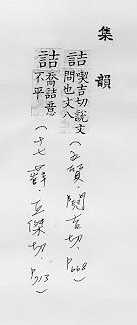 集韻
詰 喫吉切說文
問也文八
(五質·閴吉切. P.668)
詰 喬詰意
不平
(十七薛·丘傑切. P.713)